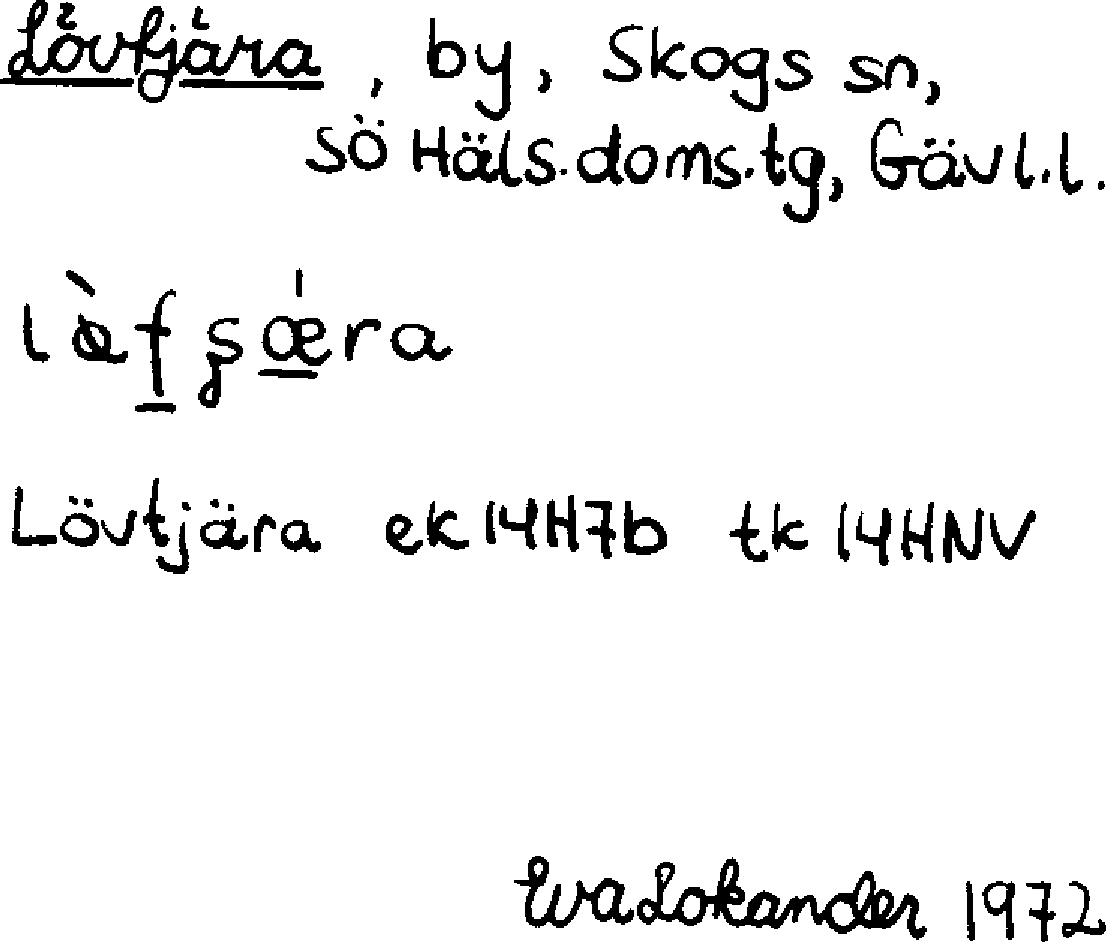 Lövtjära, by, Skogs sn,
SÖ Häls.doms.tg, Gävl.l.
Lövtjära ek 14H7b tk 14HNV
Eva Lokander 1972